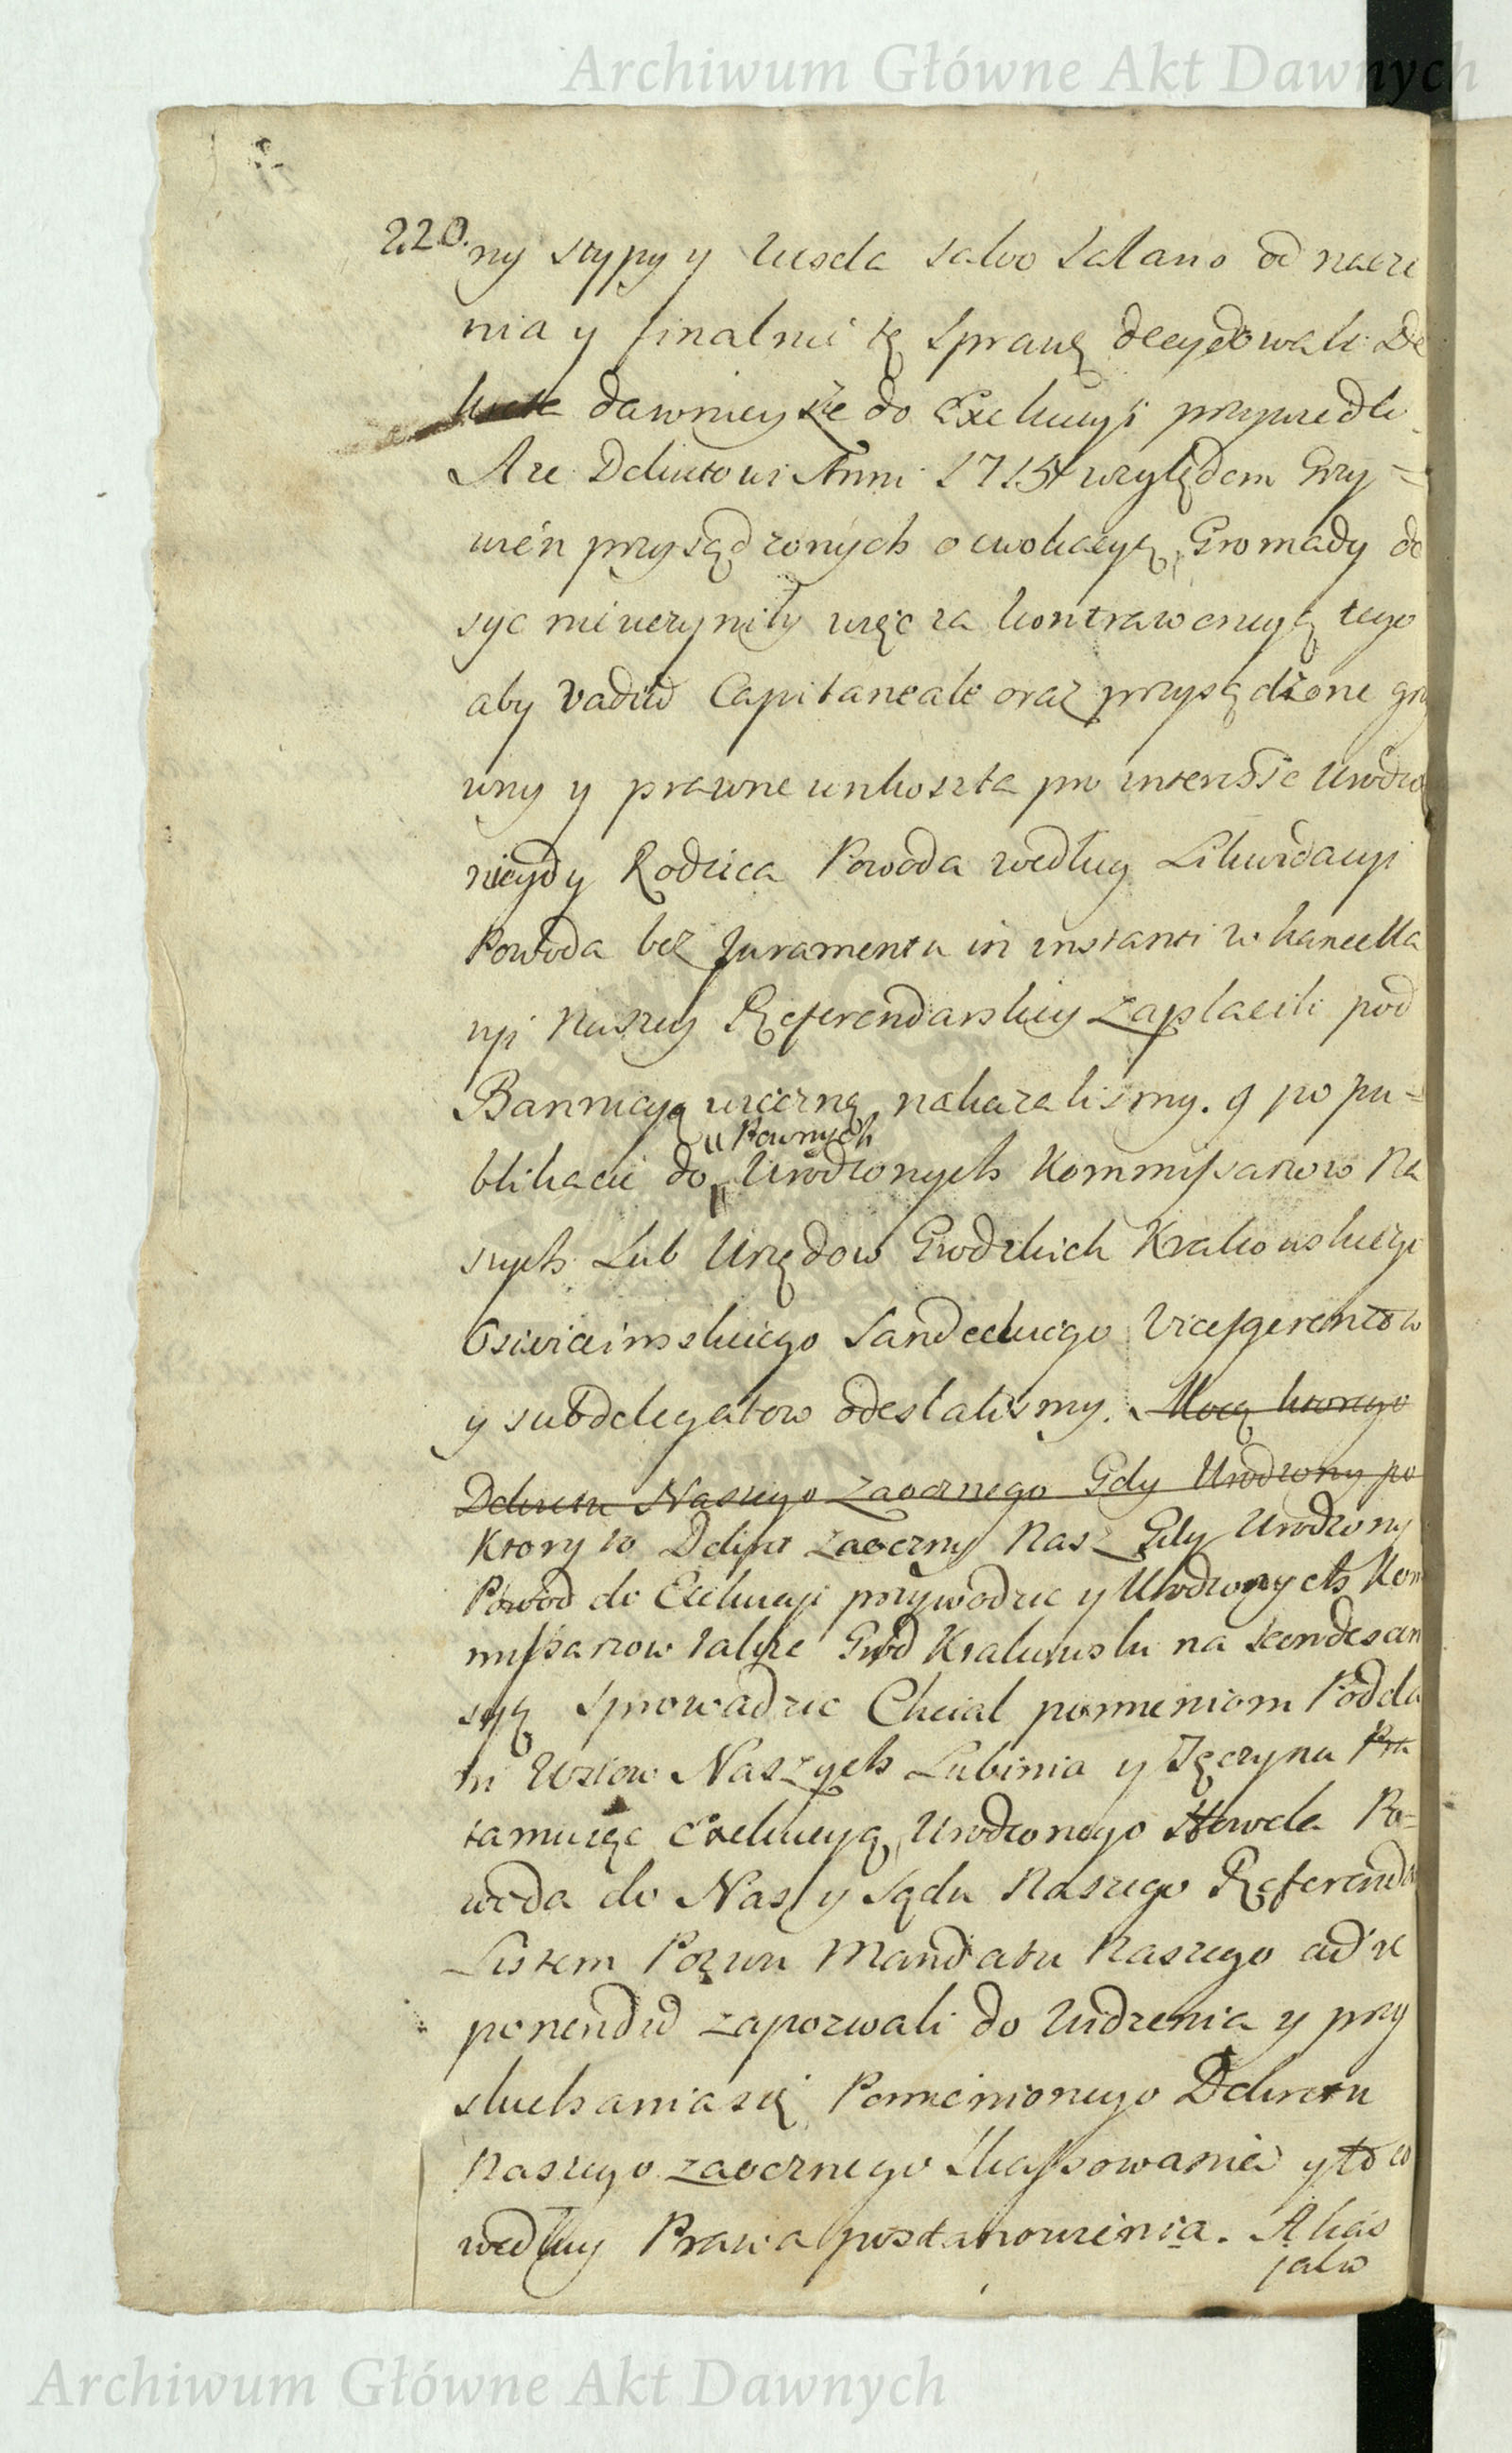 Archiwum Główne Akt Dawnych
220.
ny stypy y salvo Salario od nacze
nia y finalnie tę Sprawę decydowali De
kreta dawnieysze do Exekucyi przywiedli
A że Dekretowi Anni 1715 względem Grzy=
wien przysądzonych o ewokacyą Gromady do
syc nieuczyniły więc za kontrawencyą tego
aby vadiu Capitaneale oraz przysądzone grzy
wny y prawne unkoszta pro interesse Urodzo
niegdy Rodzica Powoda według Likwidacyi
Powoda bez Juramentu in instanti w kancella
ryi Naszey Referendarskiey zapłacili pod
Bannicyą wieczną nakazalismy. y po pu=
Pewnych
blikacie do Urodzonych Kommissarzow Na
szych Lub Urzędow Grodzkich Krakowskiego
Osiwiecimskiego Sandeckiego Vicesgerentow
y subdelegatow odesłalismy. Mocą ktorego
Dekretu Naszego Zaocznego Gdy Urodzony po
Ktory to Dekret zaoczny Nasz Gdy Urodzony
Powod do Exekucyi przywodzic y Urodzonych Kom
missarzow także Grod Krakowski na kondescen
syą sprowadzic Chciał pomienioni Podda
ni Wsiow Naszych Lubinia y Jęczyna Prz
tamuiąc Exekucyą Urodzonego Po=
woda do Nas y Sądu Naszego Referenda
Listem Pozwu Mandatu Naszego ad re
ponendu zapozwali do Widzenia y przy
słuchania się Pomienionego Dekretu
Naszego zaocznego Skassowania y to co
według Prawa postanowienia. Akas
jako
Archiwum Główne Akt Dawnych